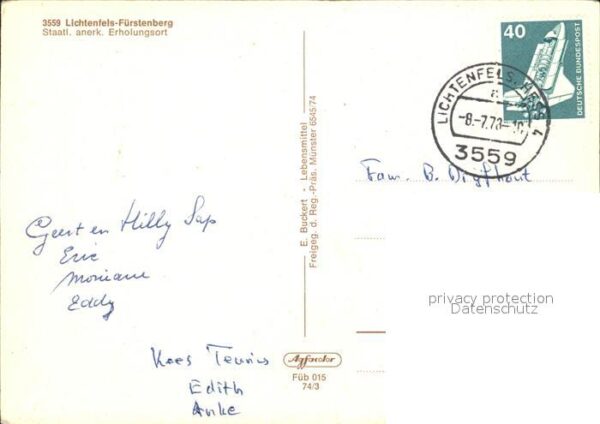 3559 Lichtenfels-Fürstenberg
Staatl. anerk. Erholungsort
40
DEUTSCHE BUNDESPOST
LICHTENFELS, HESS 4
a
-8.-7.78-16
3559
Fam. B.
Geert en Hilly Sap
Eric
Moniane
Eddy
Kees Teunis
Edith
Anke
E. Buckert - Lebensmittel
Freigeg. d. Reg.-Präs. Münster 6545/74
Agfacolor
Füb 015
74/3
privacy protection
Datenschutz